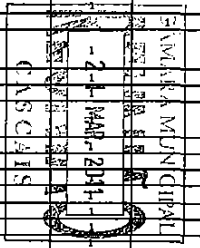 CÂMARA MUNICIPAL
21 MAR 2011
CASCAIS